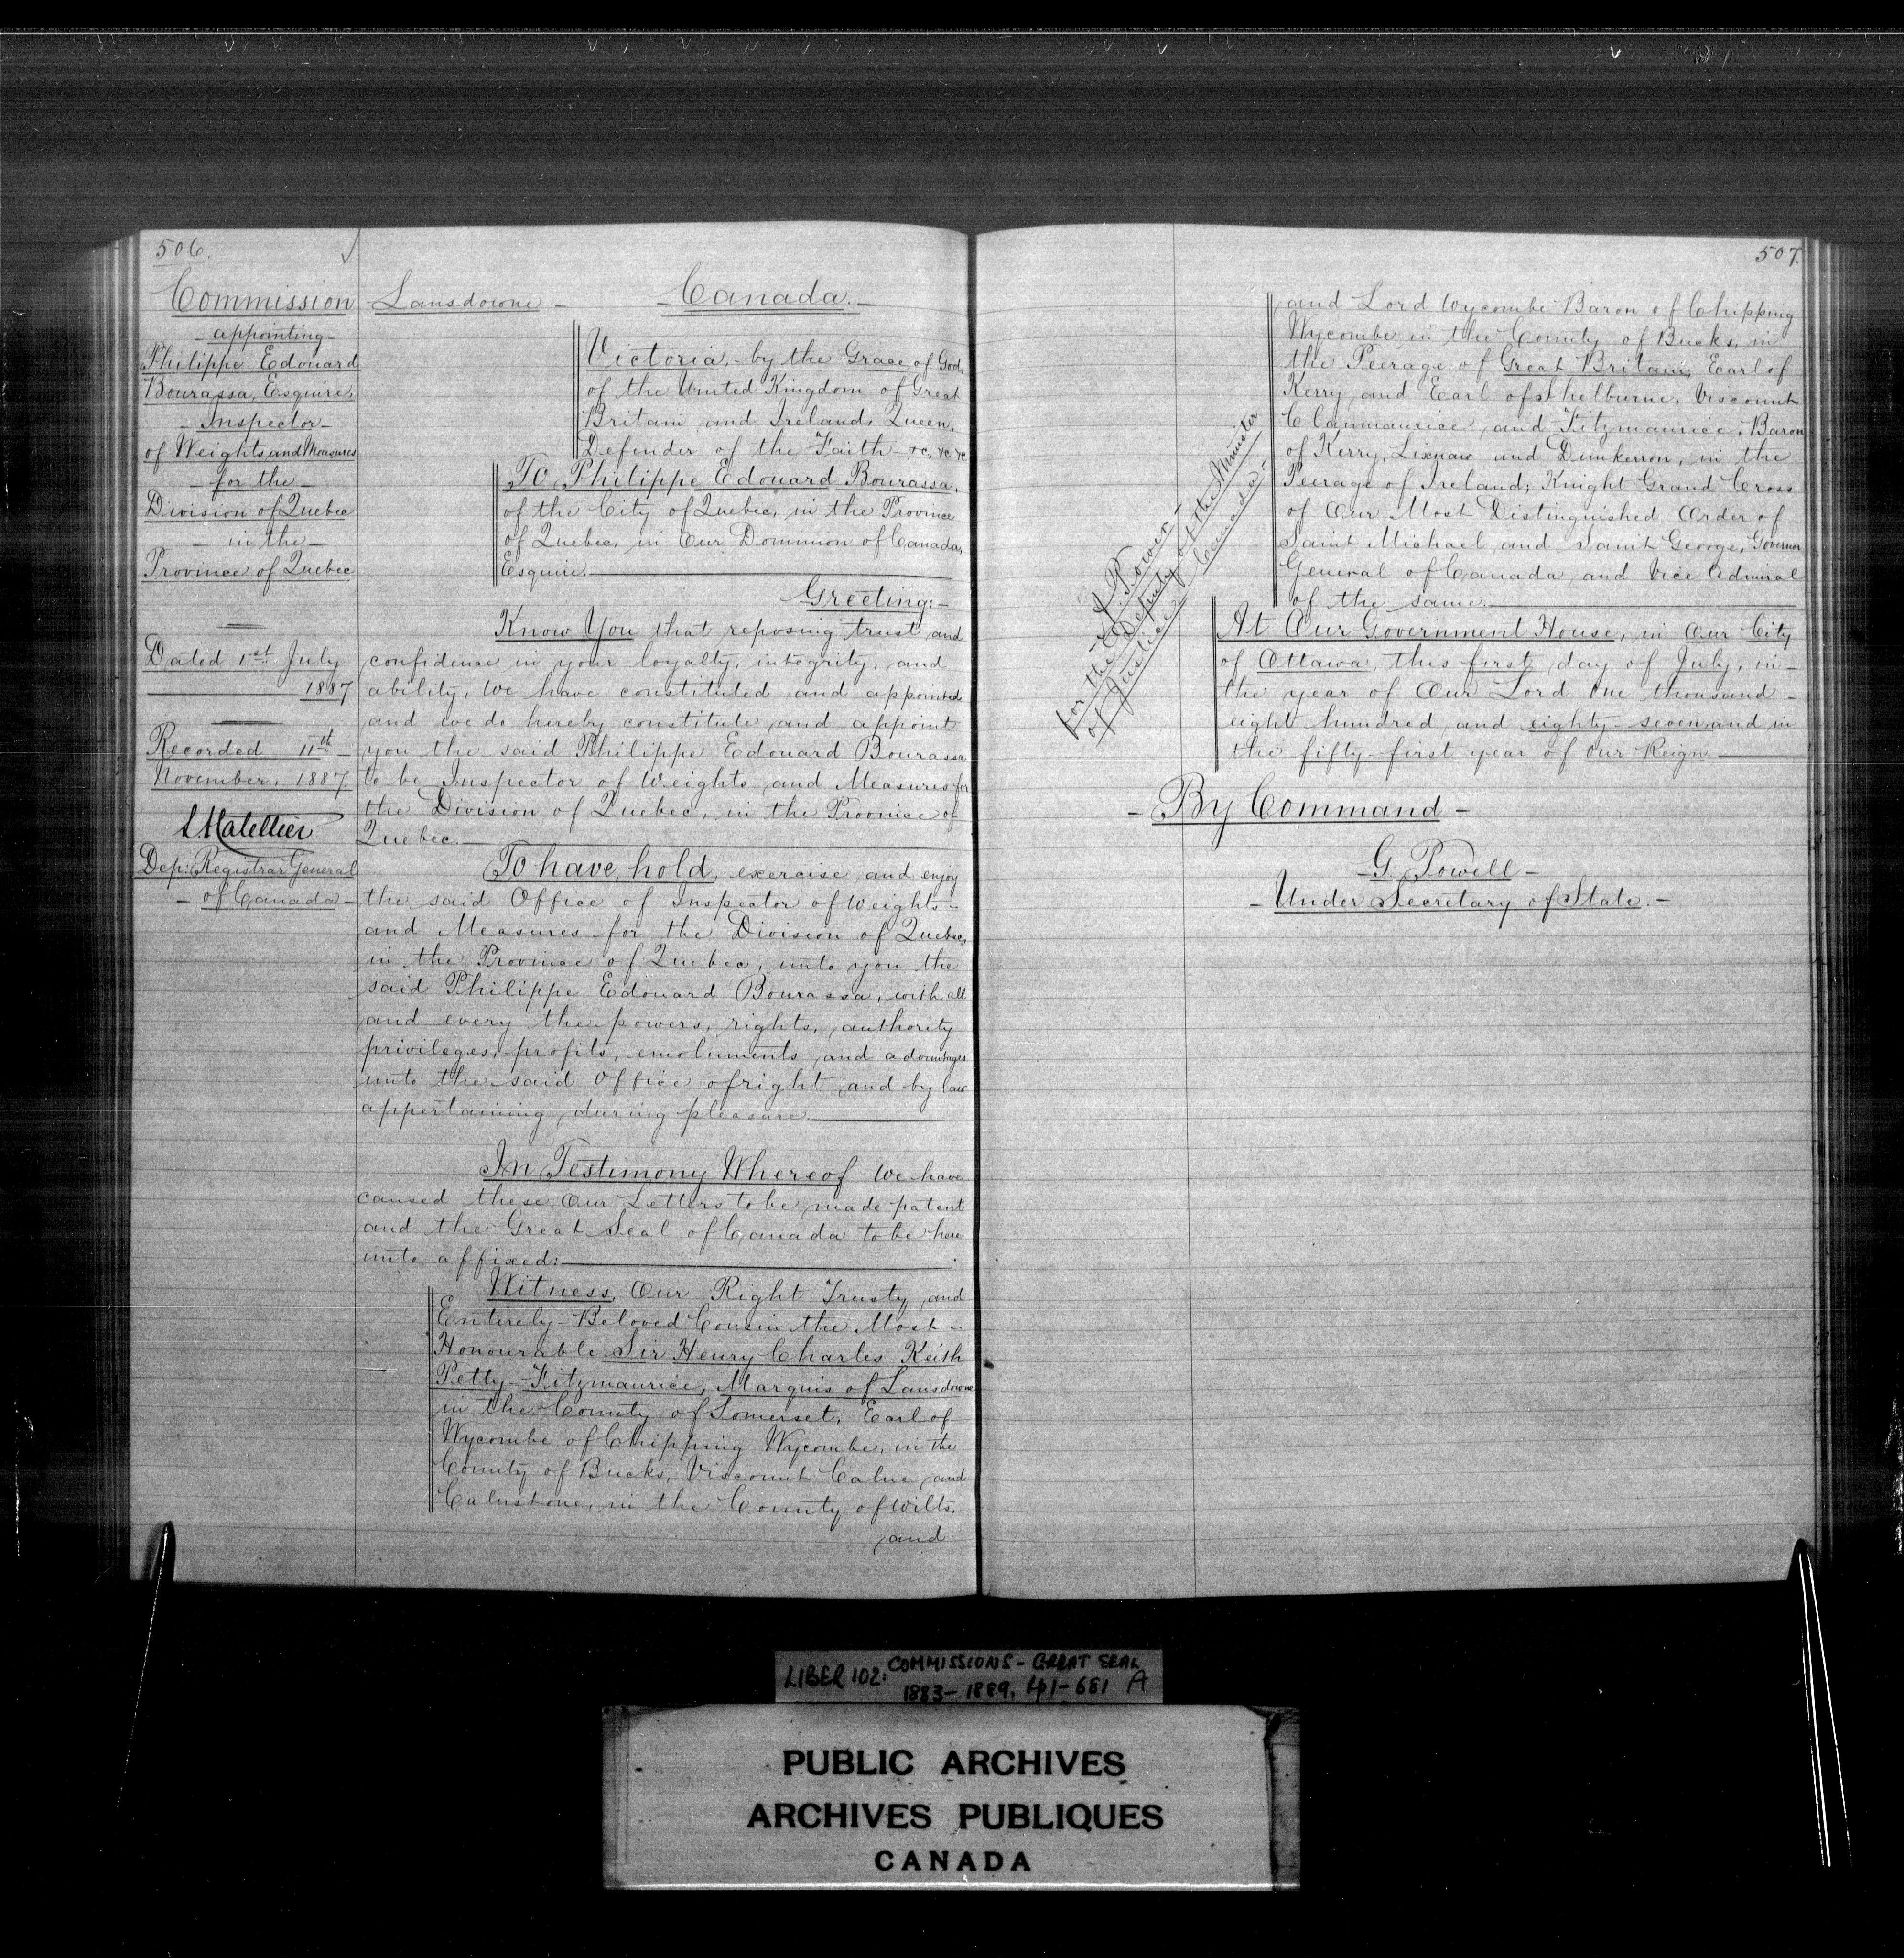 506.
Commission
appointing
Philippe Edouard
Bourassa, Esquire,
Inspector
of Weights and Measures
for the
Division of Quebec
in the
Province of Quebec
Dated 1st July
1887
Recorded 11th
November, 1887
Dep: Registrar General
of Canada
Lansdowne
Canada.
Victoria, by the Grace of God,
of the United Kingdom of Great
Britain and Ireland, Queen,
Defender of the Faith &c. &c &c
To Philippe Edouard Bourassa,
of the City of Quebec, in the Province
of Quebec, in Our Dominion of Canada,
Esquire.
Greeting:
Know You that reposing trust and
confidence in your loyalty, integrity, and
ability, We have constituted and appointed
and we do hereby constitute and appoint
you the said Philippe Edouard Bourassa
to be Inspector of Weights and Measures for
the Division of Quebec, in the Province of
Quebec.
To have, hold, exercise and enjoy
the said Office of Inspector of Weights
and Measures for the Division of Quebec,
in the Province of Quebec, unto you the
said Philippe Edouard Bourassa, with all
and every the powers, rights, authority
privileges, profits, emoluments and advantages
unto the said Office of right and by law
appertaining, during pleasure.
In Testimony Whereof We have
caused these Our Letters to be made patent
and the Great Seal of Canada to be here
unto affixed:
Witness, Our Right Trusty and
Entirely-Beloved Cousin the Most
Honourable Sir Henry Charles Keith
Petty-Fitzmaurice, Marquis of Lansdowne
in the County of Somerset, Earl of
Wycombe of Chipping Wycombe, in the
County of Bucks, Viscount Calne and
Calnstone, in the County of Wilts,
and
507.
and Lord Wycombe Baron of Chipping
Wycombe in the County of Bucks, in
the Peerage of Great Britain; Earl of
Kerry and Earl of Shelburne, Viscount
Clanmaurice and Fitzmaurice, Baron
of Kerry, Lixnaw and Dunkerron, in the
Peerage of Ireland; Knight Grand Cross
of Our Most Distinguished Order of
Saint Michael and Saint George, Governor
General of Canada and Vice Admiral
of the same.
At Our Government House, in Our City
of Ottawa, this first day of July, in
the year of Our Lord One thousand
eight hundred and eighty-seven and in
the fifty-first year of Our Reign.
Power
for the Deputy of the Minister
of Justice Canada
By Command
G. Powell
Under Secretary of State.
LIBER 102: COMMISSIONS - GREAT SEAL
1883-1889, pp1-681 A
PUBLIC ARCHIVES
ARCHIVES PUBLIQUES
CANADA